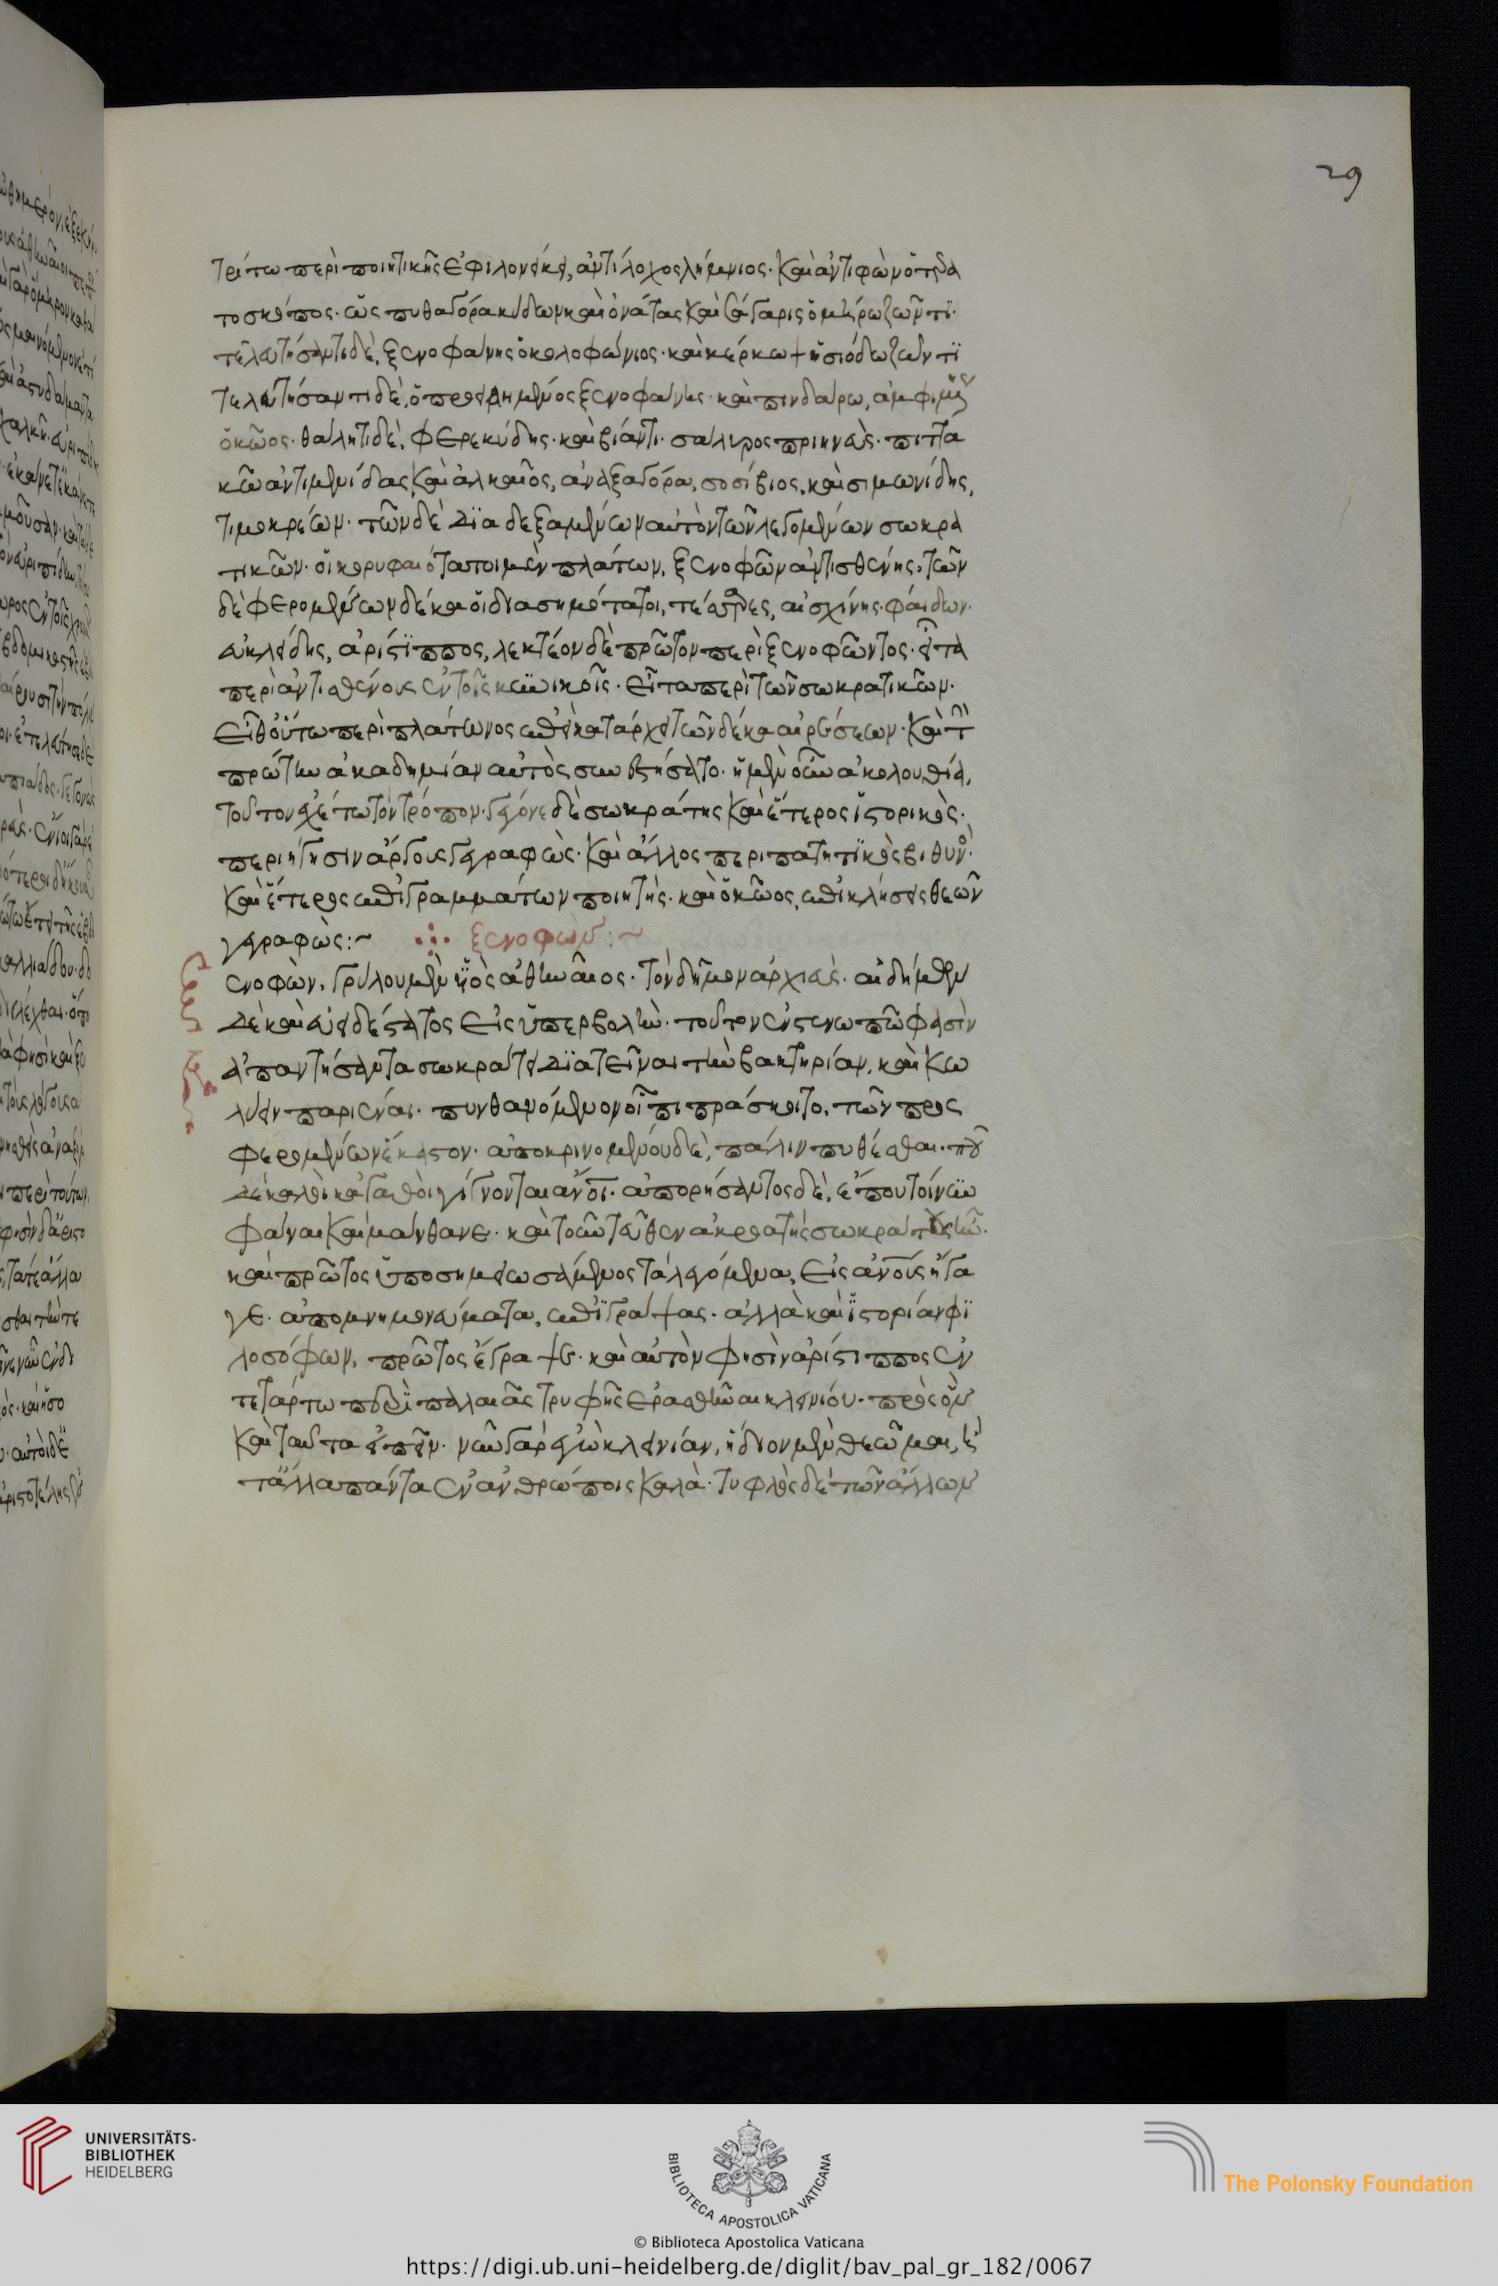 29
τρίτω περὶ ποιητικῆς ἐφιλονείκει, ἀντίλοχος λήμνιος. καὶ ἀντιφῶν ὁ τερα
τοσκόπος. ὡς πυθαγόρα κύδων καὶ ὀνάτας καὶ σάγαρις ὁμήρω ζῶντι.
τελευτήσαντι δὲ, ξενοφάνης ὁ κολοφώνιος. καὶ κέρκωψ ἡσιόδω ζῶντι
τελευτήσαντι δὲ, ὁ προειρημένος ξενοφάνης. καὶ πινδάρω, ἀμφιμένης
ὁ κῶος. θάλητι δὲ, φερεκύδης. καὶ βίαντι. σάλαρος πριηνεὺς. πιττα
κῶ ἀντιμενίδας καὶ ἀλκαῖος, ἀναξαγόρα, σοσίβιος, καὶ σιμωνίδης,
τιμοκρέων. τῶν δὲ διαδεξαμένων αὐτὸν τῶν λεγομένων σωκρα
τικῶν. οἱ κορυφαιότατοι μὲν πλάτων, ξενοφῶν ἀντισθένης, τῶν
δὲ φερομένων δέκα οἱ διασημότατοι, τέσσαρες, αἰσχίνης. φαίδων.
εὐκλείδης, ἀρίστιππος, λεκτέον δὲ πρῶτον περὶ ξενοφῶντος. εἶτα
περὶ ἀντισθένους ἐν τοῖς κυνικοῖς. εἶτα περὶ τῶν σωκρατικῶν.
εἶθ οὕτω περὶ πλάτωνος ἐπεὶ κατάρχει τῶν δέκα αἱρέσεων. καὶ τὴν
πρώτην ἀκαδημίαν αὐτὸς συνεστήσατο. ἡ μὲν οὖν ἀκολουθία,
τοῦτον ἐχέτω τὸν τρόπον. γέγονε δὲ σωκράτης καὶ ἕτερος ἱστορικὸς.
περιήγησιν ἄργους γεγραφὼς. καὶ ἄλλος περιπατητικὸς βιθυνὸς.
καὶ ἕτερος ἐπιγραμμάτων ποιητής. καὶ ὁ κῶος, ἐπικλήσεις θεῶν
γεγραφὼς:~ ξενοφῶν:~
ξενοφῶν, γρύλου μὲν υἱὸς ἀθηναῖος. τὸν δῆμον ἀρχιεὺς. αἰδήμων
δὲ καὶ εὐειδέστατος εἰς ὑπερβολὴν. τοῦτον ἐν στενωπῶ φασὶν
ἀπαντήσαντα σωκράτει διατεῖναι τὴν βακτηρίαν, καὶ κω
λύειν παριέναι. πυνθανόμενον οἷ πιπράσκοιτο, τῶν προς
φερομένων ἕκαστον. ἀποκρινομένου δὲ, πάλιν πυθέσθαι. ποῦ
δὲ καλοὶ κἀγαθοὶ γίγνονται ἄνθρωποι. ἀπορήσαντος δὲ, ἕπου τοίνυν
φάναι καὶ μάνθανε. καὶ τοὐντεῦθεν ἀκροατὴς σωκράτους ἦν.
καὶ πρῶτος ὑποσημειωσάμενος τὰ λεγόμενα, εἰς ἀνθρώπους ἤγα
γε. ἀπομνημονεύματα, ἐπιγράψας. ἀλλὰ καὶ ἱστορίαν φι
λοσόφων, πρῶτος ἔγραψε. καὶ αὐτὸν φησὶν ἀρίστιππος ἐν
τετάρτω περὶ παλαιᾶς τρυφῆς ἐρασθῆναι κλεινίου. πρὸς ὃν
καὶ ταῦτα εἰπεῖν. νῦν γὰρ ἐγὼ κλεινίαν, ἥδιον μὲν θεῶμαι, ἢ
τἄλλα πάντα ἐν ἀνθρώποις καλὰ. τυφλὸς δὲ τῶν ἄλλων
UNIVERSITÄTS-
BIBLIOTHEK
HEIDELBERG
BIBLIOTECA APOSTOLICA VATICANA
The Polonsky Foundation
© Biblioteca Apostolica Vaticana
https://digi.ub.uni-heidelberg.de/diglit/bav_pal_gr_182/0067